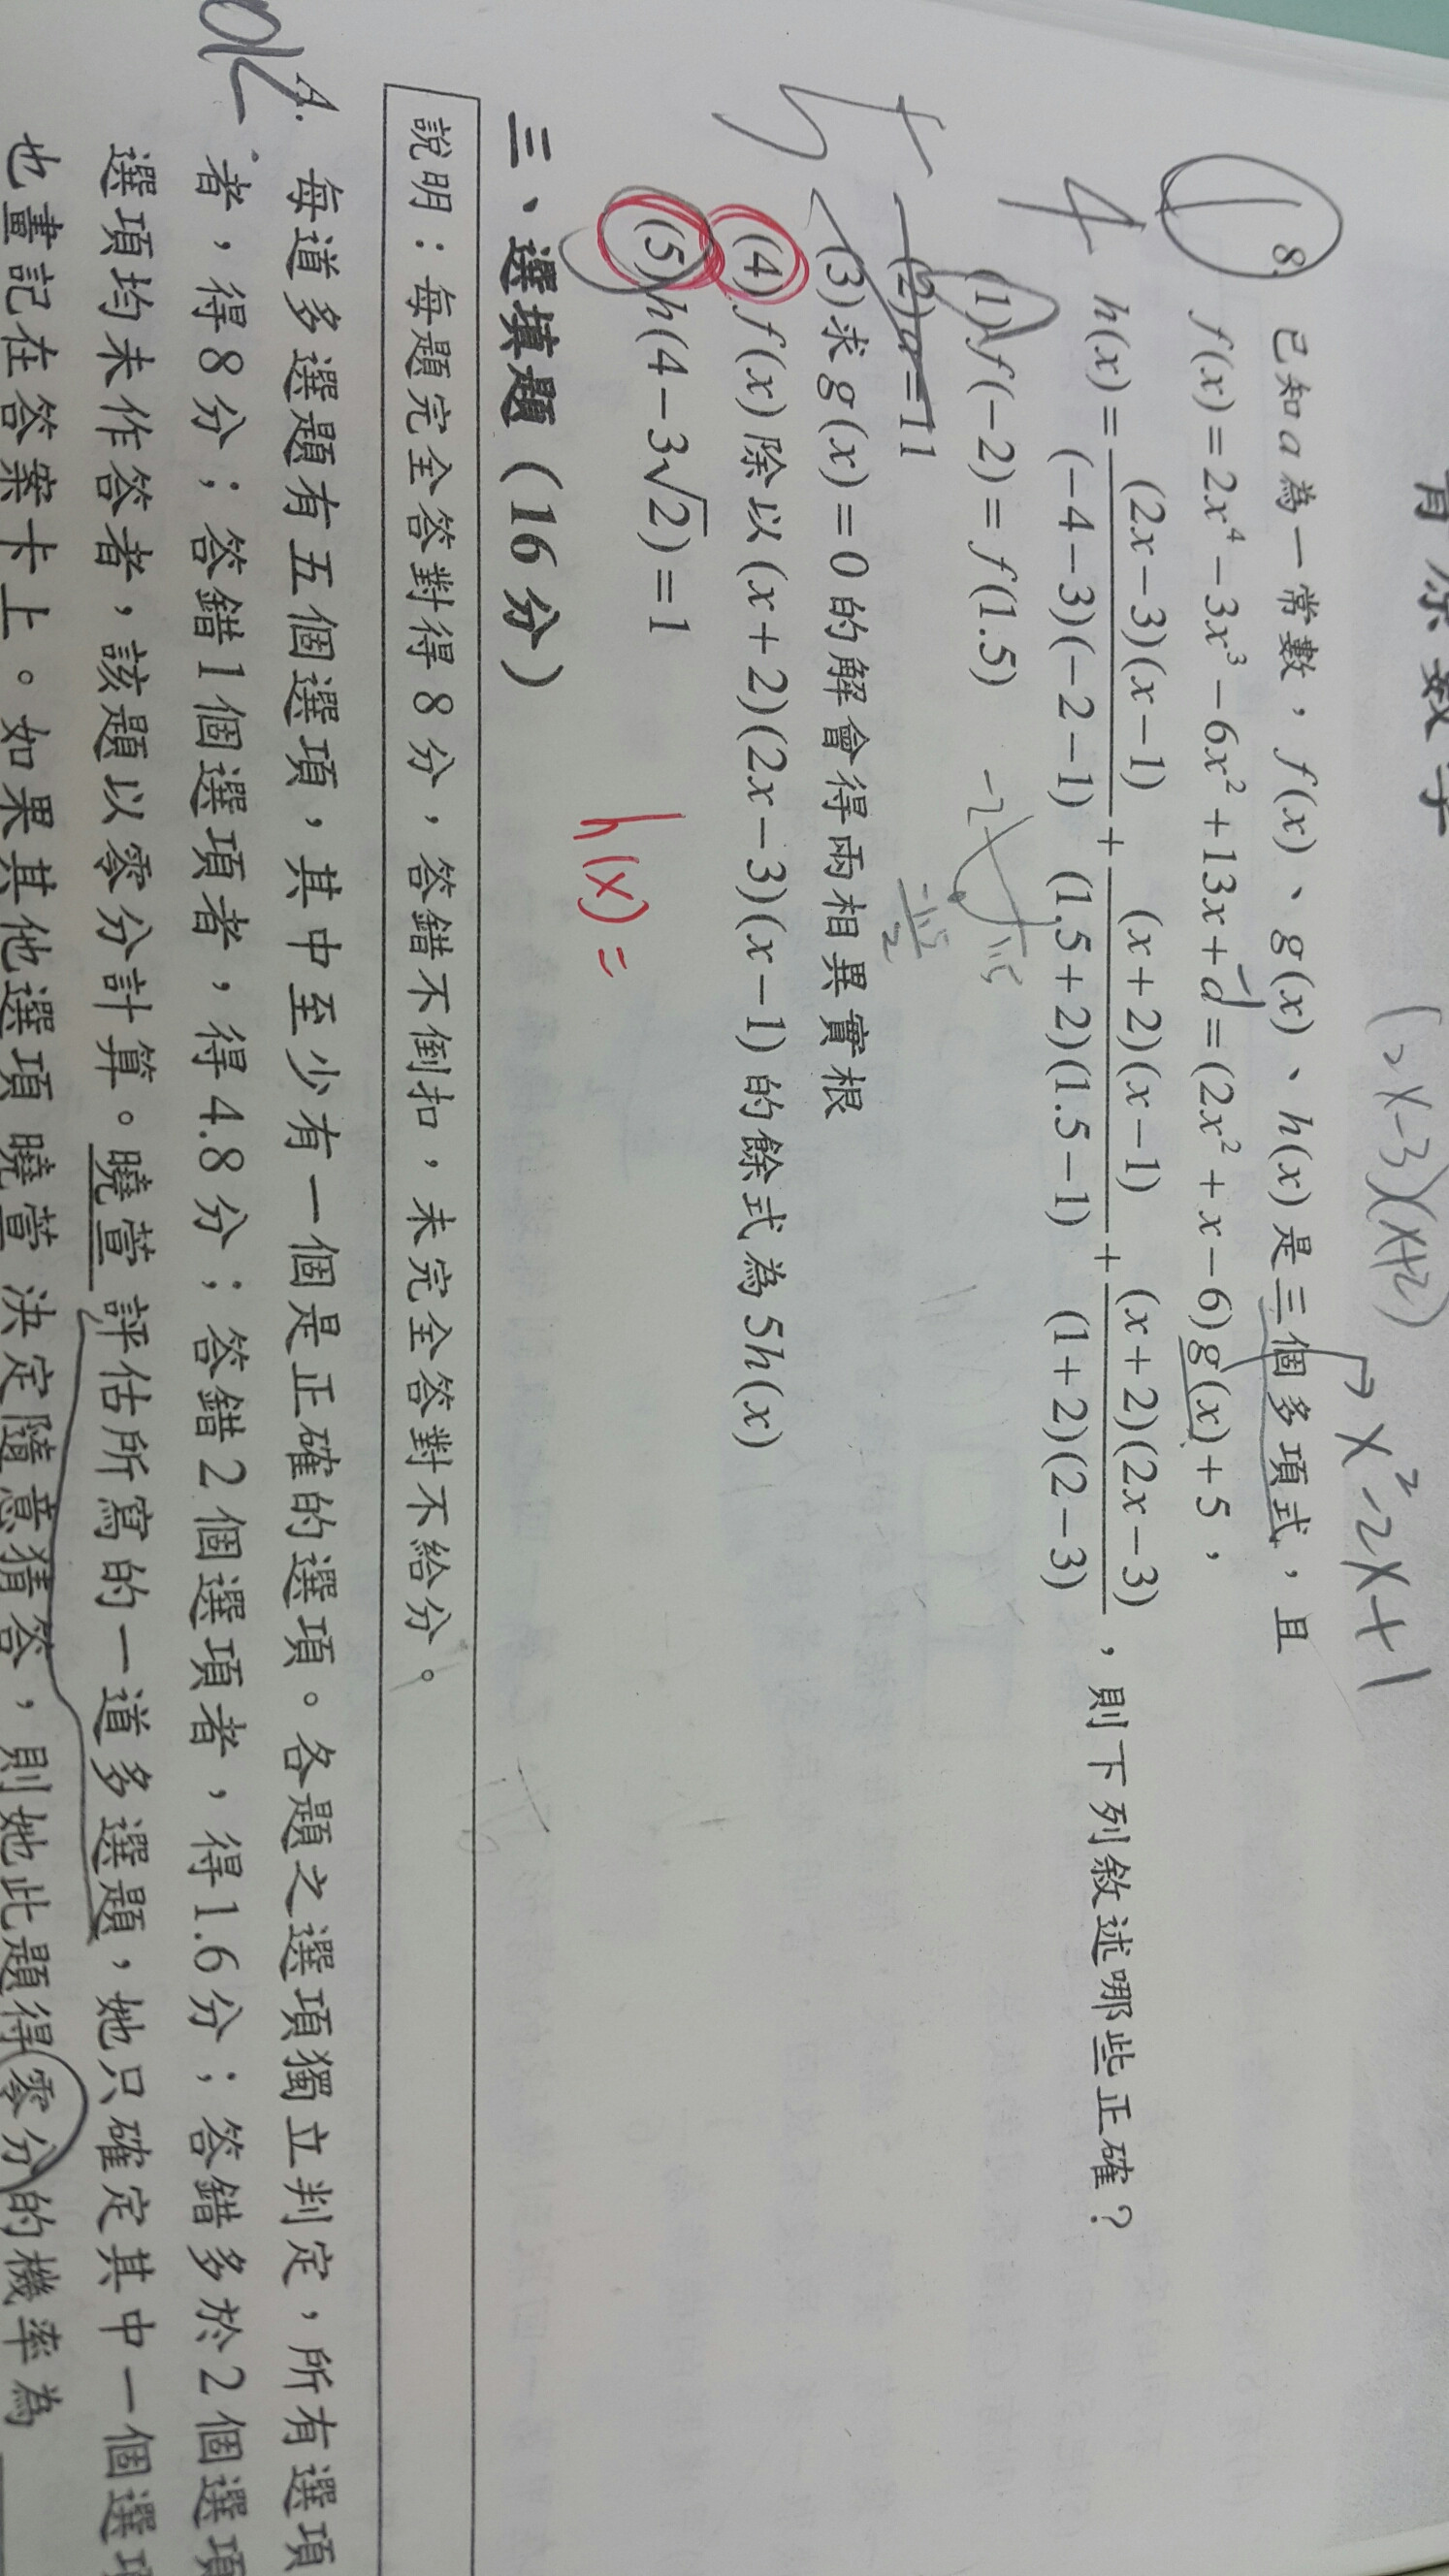 (2x-3)(x+2)
x²-2x+1
8. 已知a為一常數，f(x)、g(x)、h(x)是三個多項式，且
f(x)=2x⁴-3x³-6x²+13x+a=(2x²+x-6)g(x)+5，
-1
h(x)=(2x-3)(x-1)/(-4-3)(-2-1)+(x+2)(x-1)/(1.5+2)(1.5-1)+(x+2)(2x-3)/(1+2)(2-3)，則下列敘述哪些正確？
(1)f(-2)=f(1.5)
(2)a=11
(3)求g(x)=0的解會得兩相異實根
(4)f(x)除以(x+2)(2x-3)(x-1)的餘式為5h(x)
(5)h(4-3√2)=1
h(x)=
三、選填題（16分）
說明：每題完全答對得8分，答錯不倒扣，未完全答對不給分。
A. 每道多選題有五個選項，其中至少有一個是正確的選項。各題之選項獨立判定，所有選項
者，得8分；答錯1個選項者，得4.8分；答錯2個選項者，得1.6分；答錯多於2個選項
選項均未作答者，該題以零分計算。曉萱評估所寫的一道多選題，她只確定其中一個選項
也畫記在答案卡上。如果其他選項曉萱決定隨意猜答，則她此題得零分的機率為